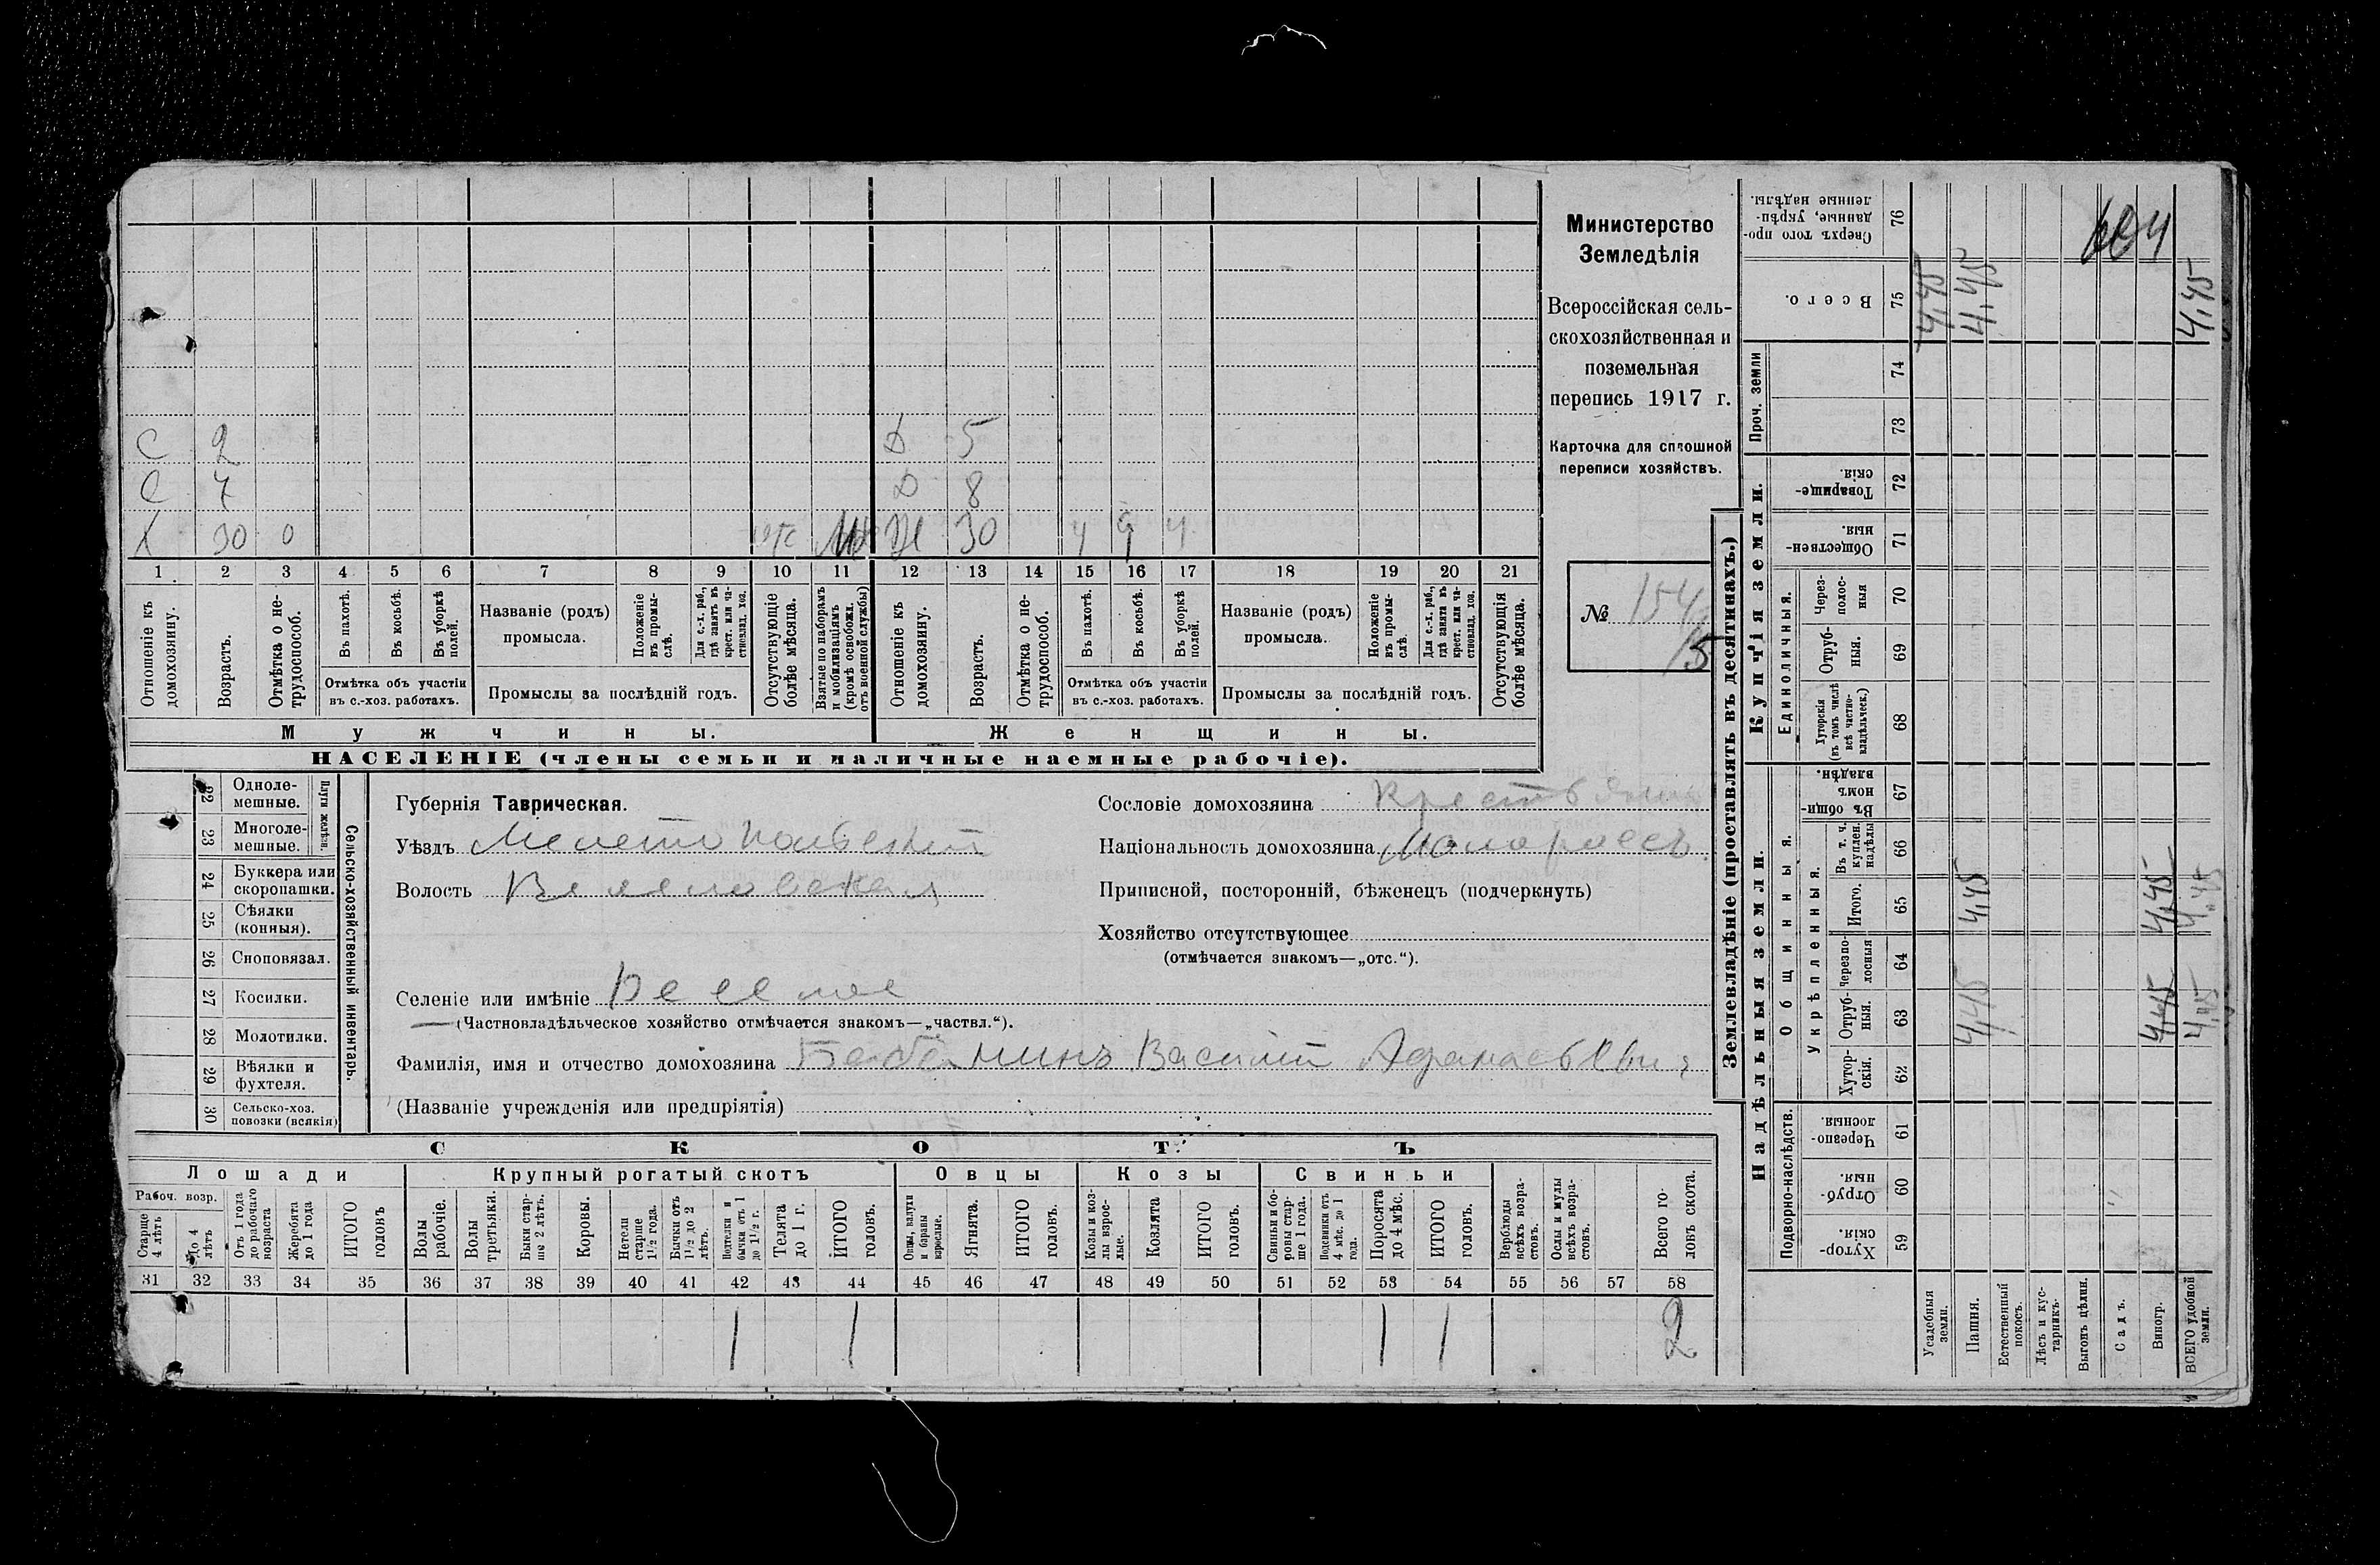 Министерство
Земледѣлія
Всероссійская сель-
скохозяйственная и
поземельная
перепись 1917 г.
Карточка для сплошной
переписи хозяйствъ.
№ 154
15
С 2 Д 5
С 7 Д 8
Х 30 0 Ж 30 ч ч ч
1 2 3 4 5 6 7 8 9 10 11 12 13 14 15 16 17 18 19 20 21
Отношеніе къ домохозяину.
Возрастъ.
Отмѣтка о не-трудоспособ.
Въ пахотѣ.
Въ косьбѣ.
Въ уборкѣ полей.
Отмѣтка объ участіи
въ с.-хоз. работахъ.
Названіе (родъ)
промысла.
Положеніе въ промы-слѣ.
Для с.-х. раб., гдѣ занятъ въ крест. или ча-стновлад. хоз.
Промыслы за послѣдній годъ.
Отсутствующіе болѣе мѣсяца.
Взятые по наборамъ и мобилизаціямъ (кромѣ освобожд. отъ военной службы)
Отношеніе къ домохозяину.
Возрастъ.
Отмѣтка о не-трудоспособ.
Въ пахотѣ.
Въ косьбѣ.
Въ уборкѣ полей.
Отмѣтка объ участіи
въ с.-хоз. работахъ.
Названіе (родъ)
промысла.
Положеніе въ промы-слѣ.
Для с.-х. раб., гдѣ занята въ крест. или ча-стновлад. хоз.
Промыслы за послѣдній годъ.
Отсутствующія болѣе мѣсяца.
Мужчины. Женщины.
НАСЕЛЕНІЕ (члены семьи и наличные наемные рабочіе).
Сельско-хозяйственный инвентарь.
Плуги желѣзн.
22 Одноле-мешные.
23 Многоле-мешные.
24 Буккера или скоропашки.
25 Сѣялки (конныя).
26 Сноповязал.
27 Косилки.
28 Молотилки.
29 Вѣялки и фухтеля.
30 Сельско-хоз. повозки (всякія)
Губернія Таврическая.
Уѣздъ Мелитопольскій
Волость Веселовская
Селеніе или имѣніе Веселое
(Частновладѣльческое хозяйство отмѣчается знакомъ—„частвл.“).
Фамилія, имя и отчество домохозяина Василій Афанасьевич
(Названіе учрежденія или предпріятія)
Сословіе домохозяина Крестьянин
Національность домохозяина Малороссъ.
Приписной, посторонній, бѣженецъ (подчеркнуть)
Хозяйство отсутствующее
(отмѣчается знакомъ—„отс.“).
СКОТЪ
Лошади
Рабоч. возр.
Старше 4 лѣтъ
До 4 лѣтъ
Отъ 1 года до рабочаго возраста
Жеребята до 1 года
ИТОГО головъ
Крупный рогатый скотъ
Волы рабочіе.
Волы третьяки.
Быки стар-ше 2 лѣтъ.
Коровы.
Нетели старше 1½ года.
Бычки отъ 1½ до 2 лѣтъ.
Подтелки и бычки отъ 1 до 1½ г.
Телята до 1 г.
ИТОГО головъ.
Овцы
Овцы, валухи и бараны взрослые.
Ягнята.
ИТОГО головъ.
Козы
Козы и коз-лы взрос-лые.
Козлята
ИТОГО головъ.
Свиньи
Свиньи и бо-ровы стар-ше 1 года.
Подсвинки отъ 4 мѣс. до 1 года.
Поросята до 4 мѣс.
ИТОГО головъ.
Верблюды всѣхъ возра-стовъ.
Ослы и мулы всѣхъ возра-стовъ.
Всего го-ловъ скота.
31 32 33 34 35 36 37 38 39 40 41 42 43 44 45 46 47 48 49 50 51 52 53 54 55 56 57 58
1 1 1 1 2
Землевладѣніе (проставлять въ десятинахъ.)
Надѣльныя земли.
Подворно-наслѣдств.
Хутор-скія. 59
Отруб-ныя. 60
Черезпо-лосныя 61
Общинныя.
Укрѣпленныя.
Хутор-скія. 62
Отруб-ныя. 63
Черезпо-лосныя 64
Итого. 65
Въ т. ч. куплен. надѣлы 66
Въ общи-номъ владѣн. 67
Купчія земли.
Единоличныя.
Хуторскія (въ томъ числѣ всѣ частно-владѣльческ.) 68
Отруб-ныя. 69
Через-полос-ныя 70
Обществен-ныя. 71
Товарище-скія. 72
Проч. земли
73
74
Всего. 75
Сверхъ того про-данные, укрѣп-ленные надѣлы. 76
Усадебныя земли. 4,45
Пашня. 4,45 4,45 4,45
Естественный покосъ.
Лѣсъ и кус-тарникъ.
Выгонъ цѣлин.
Садъ.
Виногр. 4,45 4,45
ВСЕГО удобной земли. 4,45 4,45 4,45